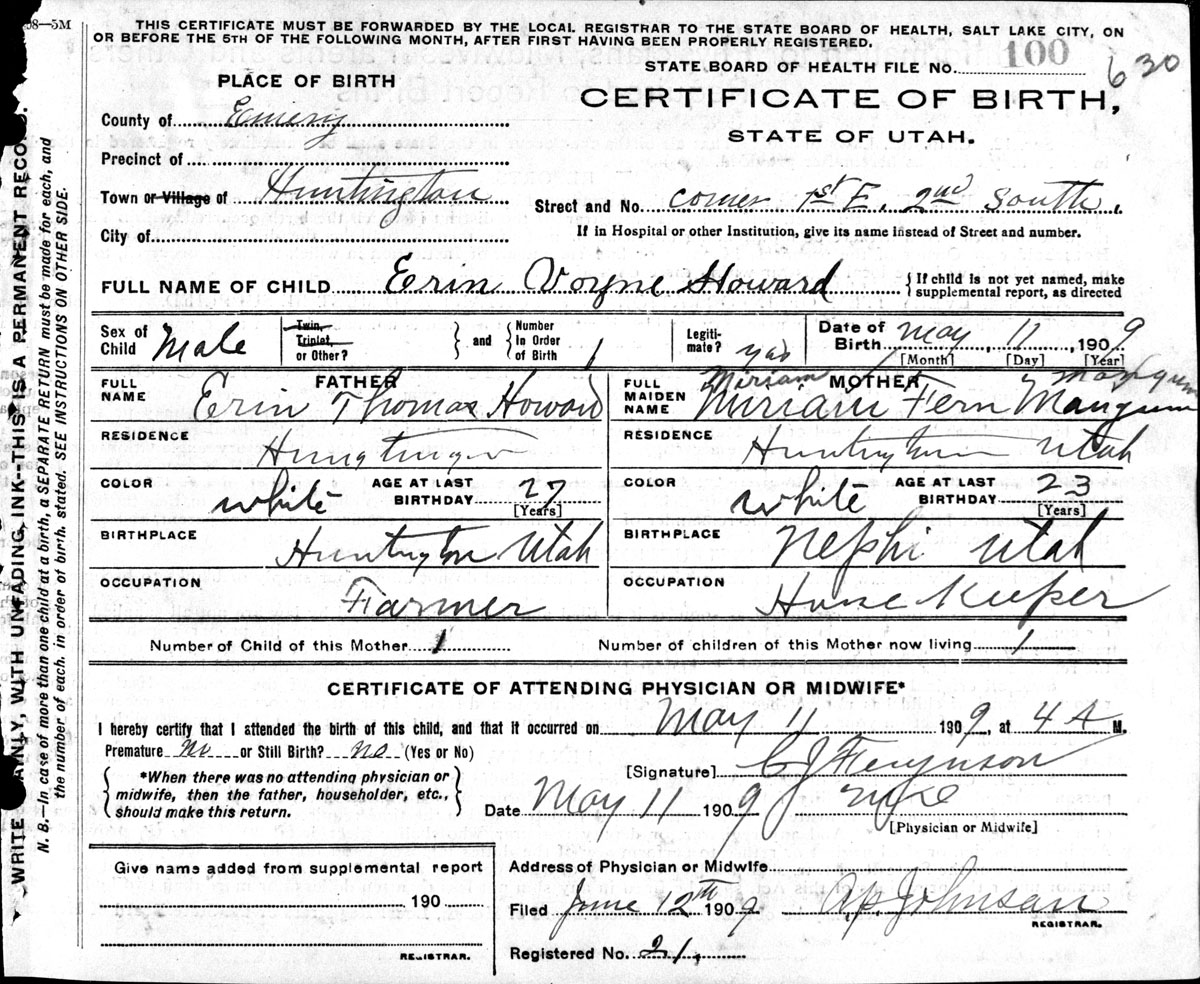 98—5M
THIS CERTIFICATE MUST BE FORWARDED BY THE LOCAL REGISTRAR TO THE STATE BOARD OF HEALTH, SALT LAKE CITY, ON
OR BEFORE THE 5TH OF THE FOLLOWING MONTH, AFTER FIRST HAVING BEEN PROPERLY REGISTERED.
STATE BOARD OF HEALTH FILE No. 100 630
PLACE OF BIRTH
CERTIFICATE OF BIRTH,
STATE OF UTAH.
County of Emery
Precinct of
Town or Village of Huntington
Street and No. corner 1st E. 2nd South.
City of
If in Hospital or other Institution, give its name instead of Street and number.
FULL NAME OF CHILD Erin Voyne Howard {If child is not yet named, make supplemental report, as directed
Sex of Child Male
Twin, Triplet, or Other? } and { Number In Order of Birth 1
Legitimate? yes
Date of Birth May 11, 1909
[Month] [Day] [Year]
FATHER
FULL NAME Erin Thomas Howard
RESIDENCE
COLOR white AGE AT LAST BIRTHDAY 27 [Years]
BIRTHPLACE Huntington Utah
OCCUPATION Farmer
MOTHER
Miriam Mangum
FULL MAIDEN NAME Miriam Fern Mangum
RESIDENCE Huntington Utah
COLOR white AGE AT LAST BIRTHDAY 23 [Years]
BIRTHPLACE Nephi Utah
OCCUPATION House Keeper
Number of Child of this Mother 1 Number of children of this Mother now living 1
CERTIFICATE OF ATTENDING PHYSICIAN OR MIDWIFE*
I hereby certify that I attended the birth of this child, and that it occurred on May 11 1909, at 4 A M.
Premature no or Still Birth? no (Yes or No)
{*When there was no attending physician or midwife, then the father, householder, etc., should make this return.}
[Signature] Ferguson
Date May 11 1909
[Physician or Midwife]
Give name added from supplemental report
190
REGISTRAR.
Address of Physician or Midwife
Filed June 12th 1909 A.P. Johnson
REGISTRAR.
Registered No. 21,
WRITE PLAINLY, WITH UNFADING INK--THIS IS A PERMANENT RECORD.
N. B.—In case of more than one child at a birth, a SEPARATE RETURN must be made for each, and
the number of each, in order of birth, stated. SEE INSTRUCTIONS ON OTHER SIDE.